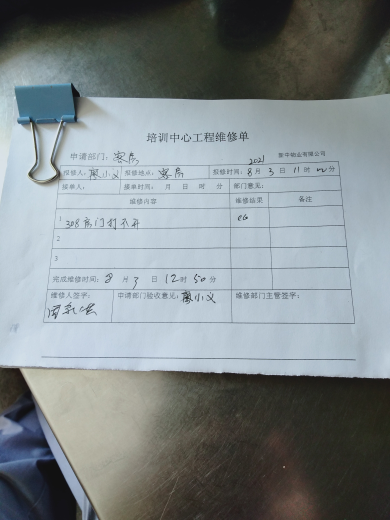 培训中心工程维修单
申请部门：客房 2021 新中物业有限公司
报修人：廖小义 报修地点：客房 报修时间：8月3日11时00分
接单人： 接单时间： 月 日 时 分 部门意见：
维修内容 维修结果 备注
1 308房门打不开
2
3
完成维修时间：8月3日12时50分
维修人签字： 申请部门验收意见：廖小义 维修部门主管签字：